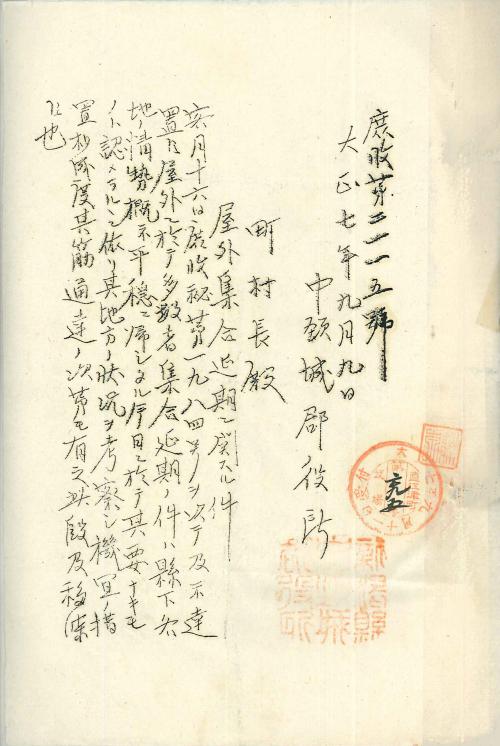 庶收第二一一五號
大正七年九月九日
中頚城郡役所
町村長殿
屋外集合延期ニ関スル件
客月十六日庶收秘第一九八四号ヲ以テ及示達
置候屋外ニ於テ多数者集合延期ノ件ハ縣下各
地ノ情勢概示平穏ニ帰シタル今日ニ於テ其要ナキモ
ノト認メラルヽニ依リ其地方ノ状況ヲ考察シ機宜ノ措
置相成度其筋通達ノ次第モ有之此段及移牒
候也